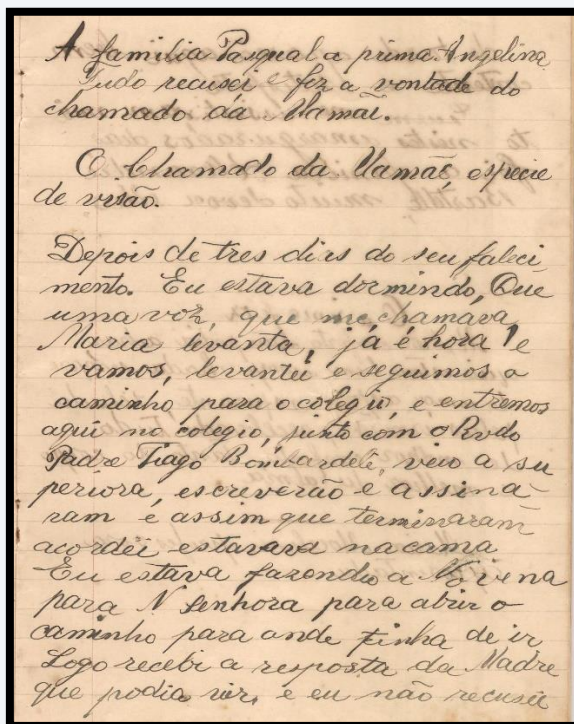 A familia Pasqual a prima Angelina
Tudo recusei e fiz a vontade do
chamado da Mamãi.
O Chamado da Mamãi, especie
de visão.
Depois de tres dias do seu faleci
mento. Eu estava dormindo, Que
uma voz, que me chamava,
Maria levanta, já é hora! e
vamos, levantei e seguimos o
caminho para o colegio, e entremos
aqui no colegio, junto com o Rvdo
Padre Tiago Bombardeli, veio a su
periora, escreverão e assina-
ram e assim que terminaram
acordei estavava na cama
Eu estava fazendo a Novena
para N Senhora para abrir o
caminho para onde tinha de ir
Logo recebi a resposta da Madre
que podia vir, e eu não recusei